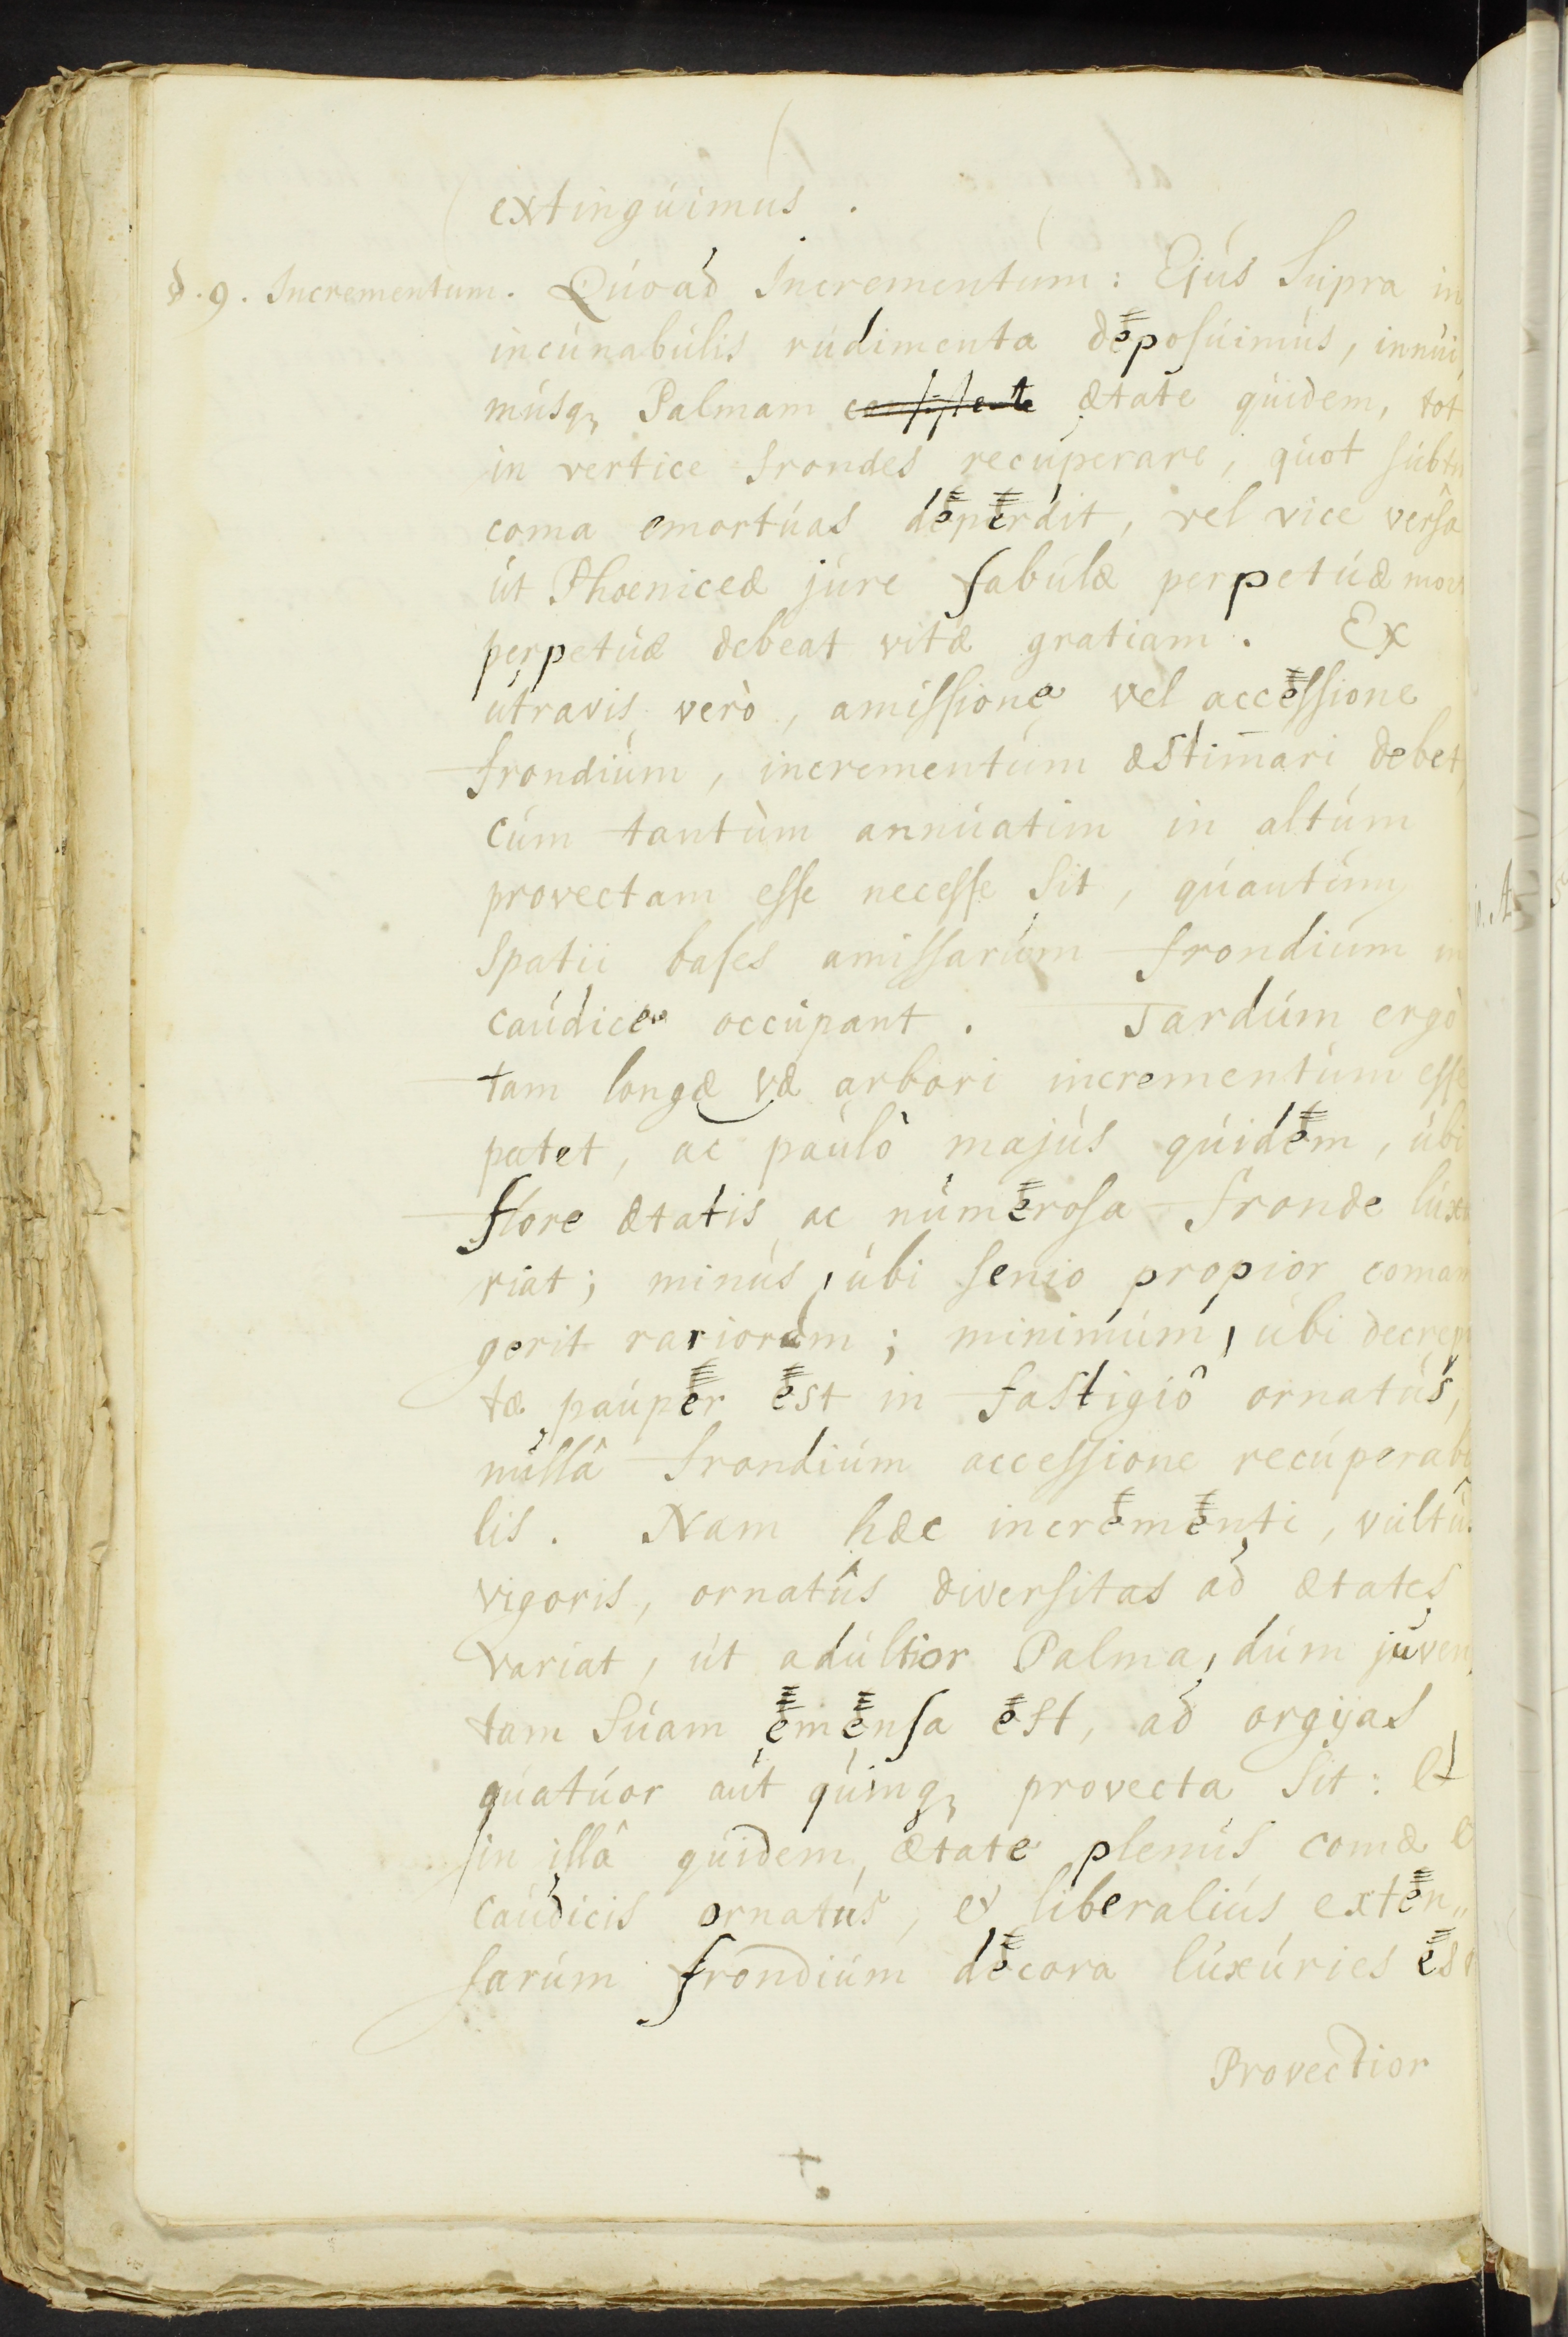 extinguimus.
§.9. Incrementum. Quoad Incrementum: Ejus Supra in
incunabulis rudimenta deposuimus, innui
musq₃ Palmam consistente ætate quidem, tot
in vertice frondes recuperare, quot subtu
coma emortuas deperdit, vel vice versâ
ut Phoeniceæ jure fabulæ perpetuæ mor
perpetuæ debeat vitæ gratiam. Ex
utravis verò, amissione vel accessione
frondium, incrementum æstim̄ari debet,
cum tantùm annuatim in altum
provectam esse necesse sit, quantum
spatii bases amissarum frondium in
caudice occupant. Tardum ergò
tam longævæ arbori incrementum esse
patet, ac paulò majus quidem, ubi
flore ætatis ac numerosa fronde luxu
riat; minus, ubi senio propior comam
gerit rariorem; minimum, ubi decrepi
tæ pauper est in fastigiô ornatus,
nullâ frondium accessione recuperabi
lis. Nam hæc incrementi, vultûs
vigoris, ornatûs diversitas ad ætates
variat, ut adultior Palma, dum juven
tam suam emensa est, ad orgijas
quatuor aut quinq₃ provecta sit: Et
in illâ quidem ætate plenus comæ &
caudicis ornatus, & liberalius exten„
sarum frondium decora luxuries est
Provectior